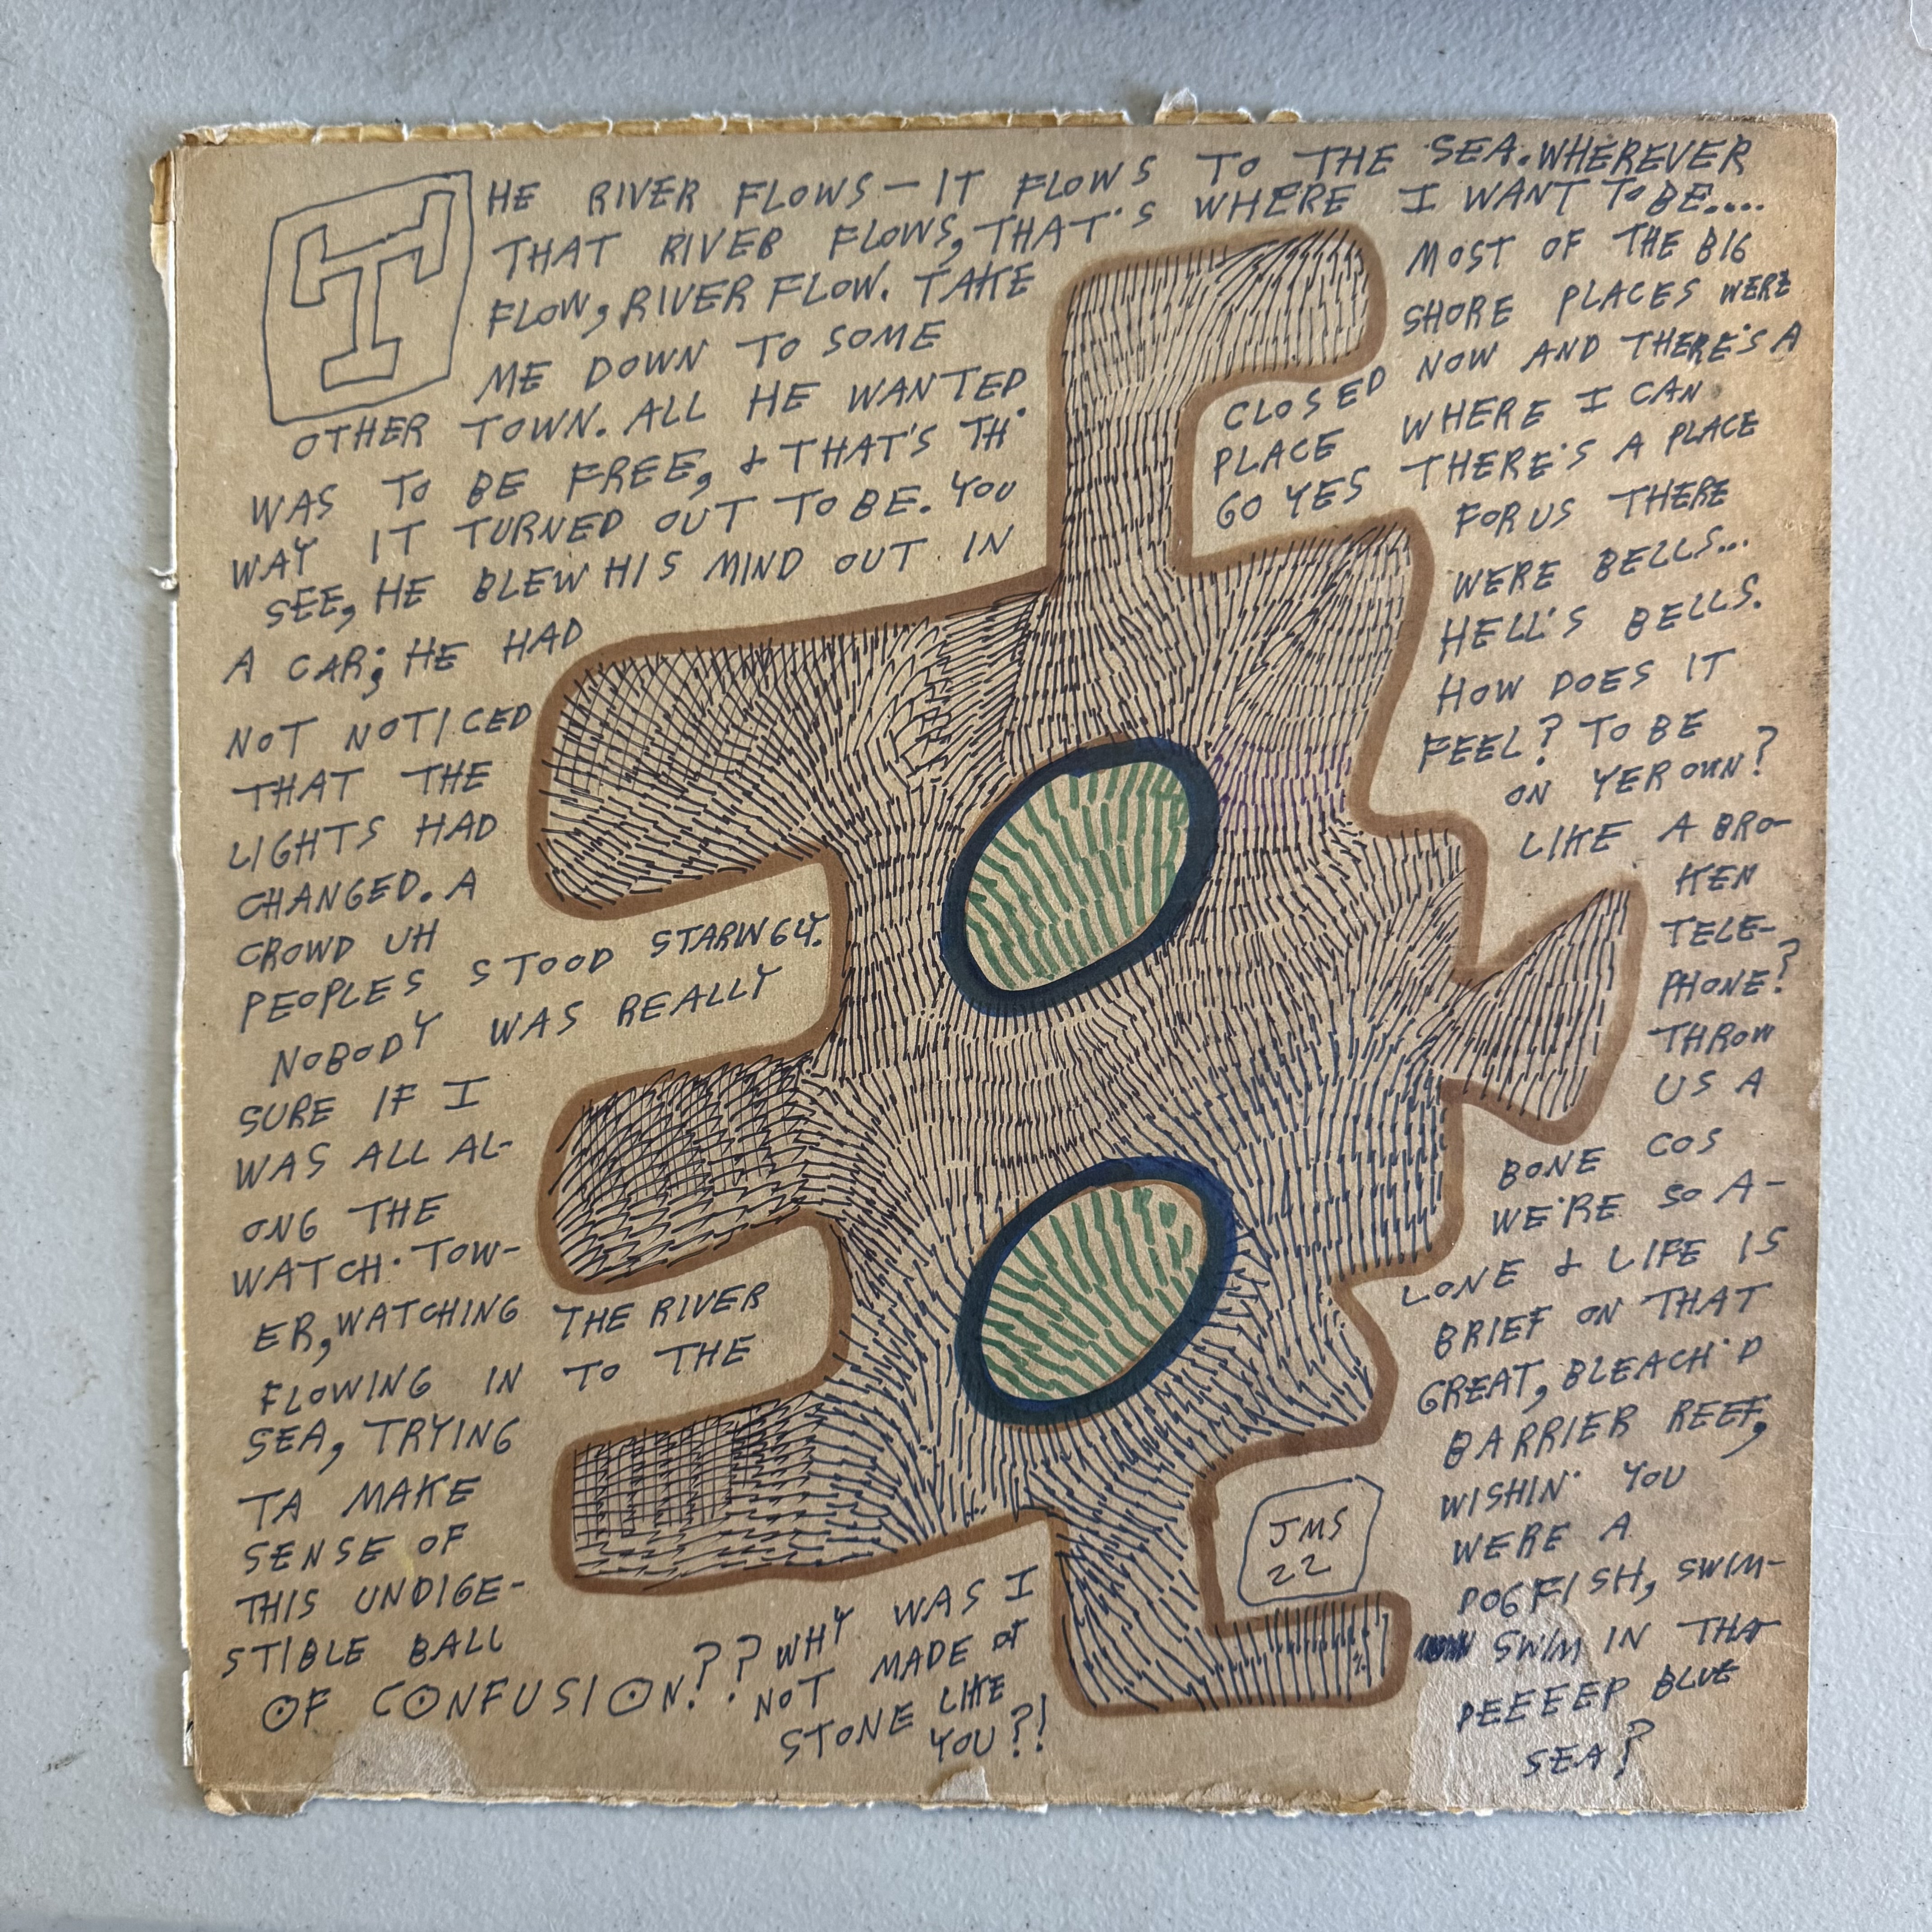 THE RIVER FLOWS — IT FLOWS TO THE SEA. WHEREVER
THAT RIVER FLOWS, THAT'S WHERE I WANT TO BE....
FLOW, RIVER FLOW. TAKE
ME DOWN TO SOME
OTHER TOWN. ALL HE WANTED
WAS TO BE FREE, & THAT'S TH'
WAY IT TURNED OUT TO BE. YOU
SEE, HE BLEW HIS MIND OUT IN
A CAR; HE HAD
NOT NOTICED
THAT THE
LIGHTS HAD
CHANGED. A
CROWD UH
PEOPLES STOOD STARINGLY.
NOBODY WAS REALLY
SURE IF I
WAS ALL AL-
ONG THE
WATCH·TOW-
ER, WATCHING THE RIVER
FLOWING IN TO THE
SEA, TRYING
TA MAKE
SENSE OF
THIS UNDIGE-
STIBLE BALL
OF CONFUSION.?? WHY WAS I
NOT MADE OF
STONE LIKE
YOU?!
MOST OF THE BIG
SHORE PLACES WERE
CLOSED NOW AND THERE'S A
PLACE WHERE I CAN
GO YES THERE'S A PLACE
FOR US THERE
WERE BELLS...
HELL'S BELLS.
HOW DOES IT
FEEL? TO BE
ON YER OWN?
LIKE A BRO-
KEN
TELE-
PHONE?
THROW
US A
BONE COS
WE'RE SO A-
LONE & LIFE IS
BRIEF ON THAT
GREAT, BLEACH'D
BARRIER REEF,
WISHIN' YOU
WERE A
DOGFISH, SWIM-
SWIM IN THA
DEEEEP BLUE
SEA?
JMS
22